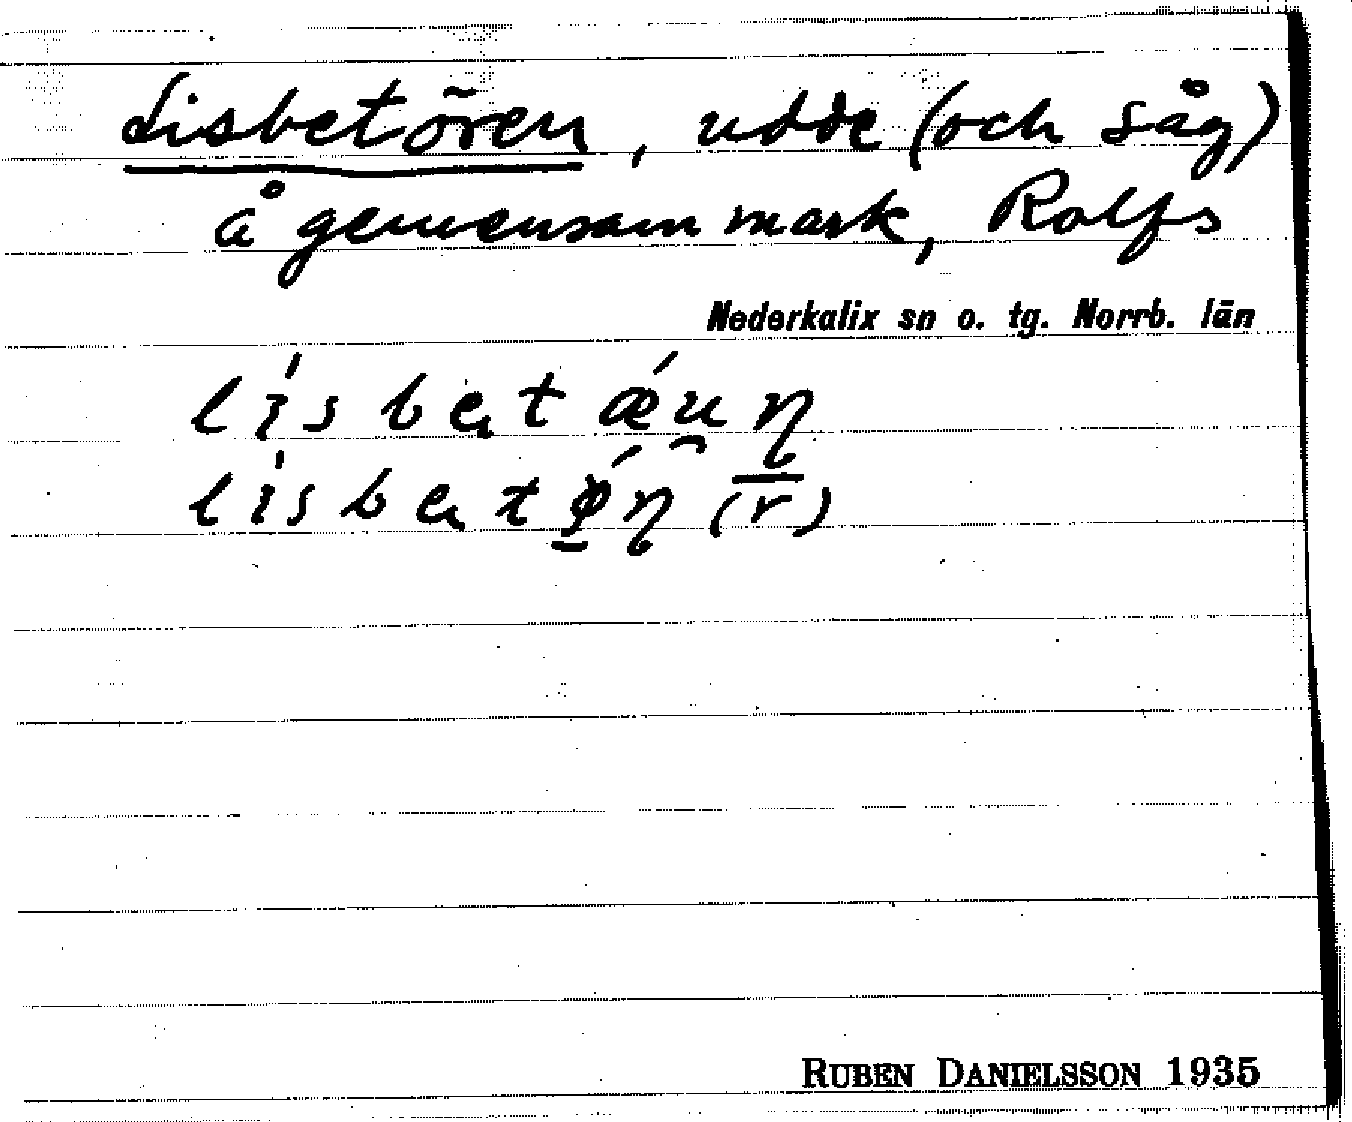 Lisbetören, udde (och såg)
å gemensam mark, Rolfs
Nederkalix sn o. tg. Norrb. län
RUBEN DANIELSSON 1935